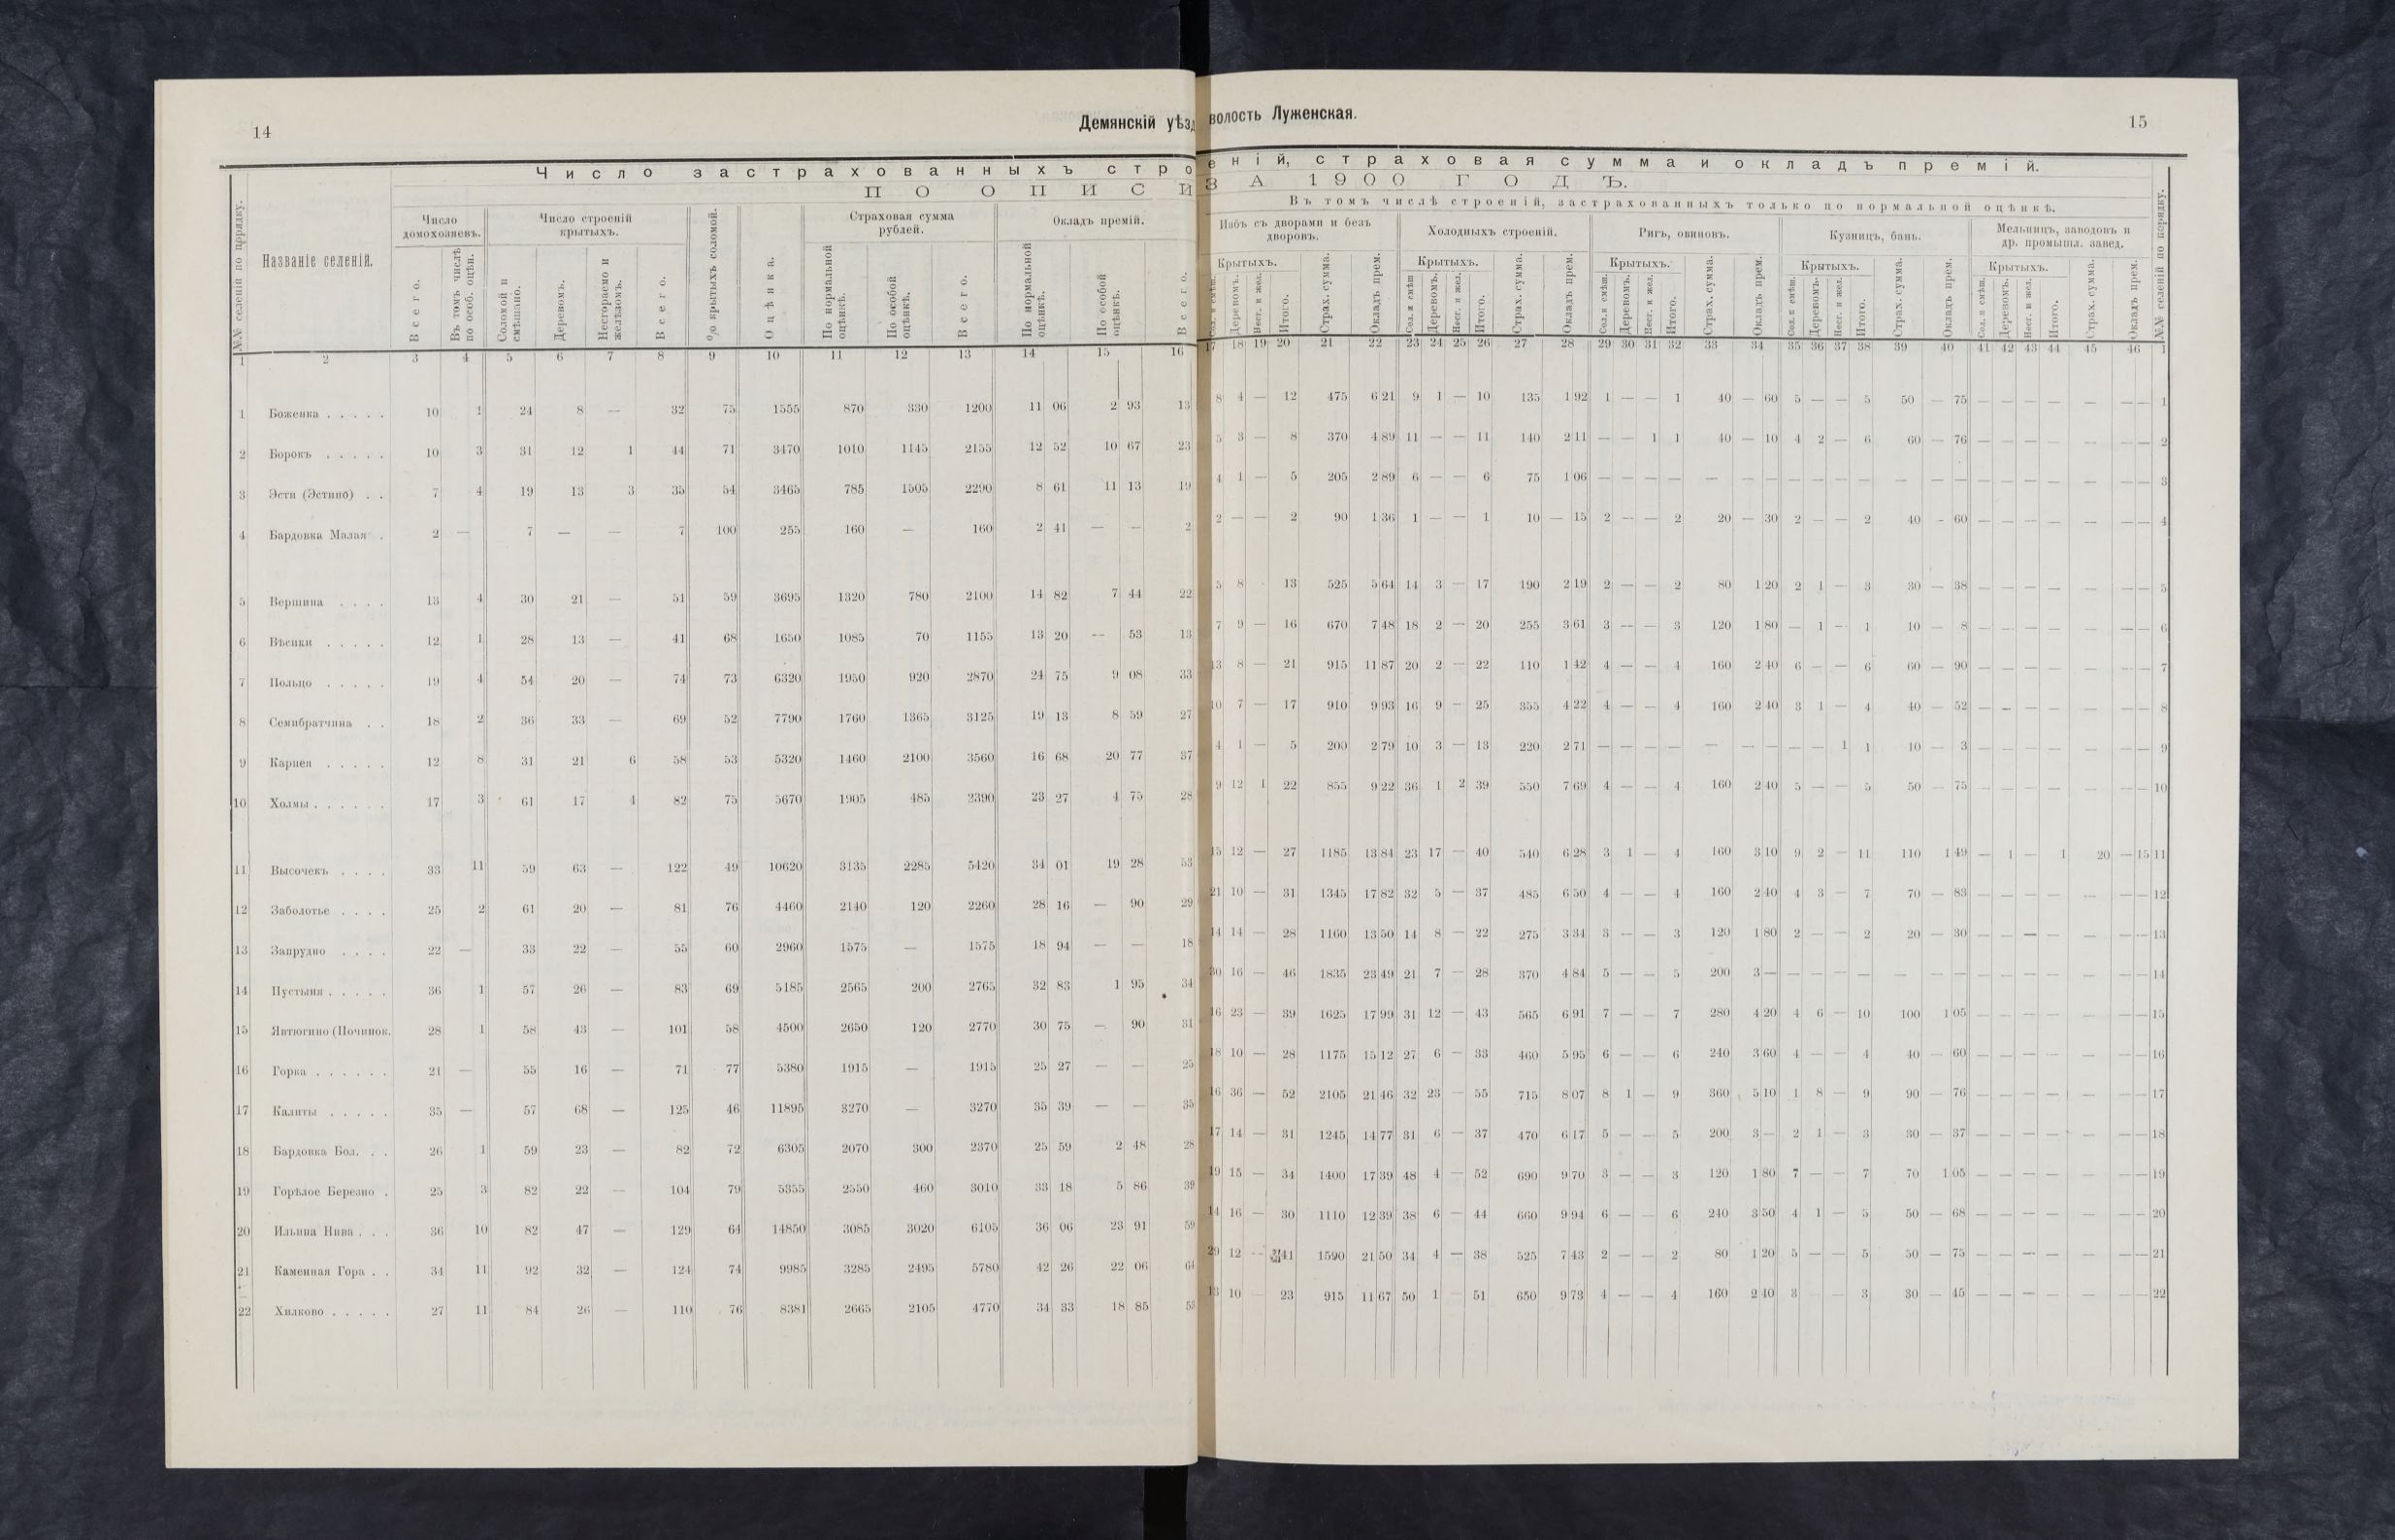 14
Демянскій уѣзд
волость Луженская.
15
Число застрахованныхъ стро
еній, страховая сумма и окладъ премій.
ПО ОПИСИ
ЗА 1900 ГОДЪ.
Въ томъ числѣ строеній, застрахованныхъ только по нормальной оцѣнкѣ.
№№ селеній по порядку.
Названіе селеній.
Число домохозяевъ.
Всего.
Въ томъ числѣ по особ. оцѣн.
Число строеній крытыхъ.
Соломой и смѣшано.
Деревомъ.
Несгораемо и желѣзомъ.
Всего.
% крытыхъ соломой.
Оцѣнка.
Страховая сумма рублей.
По нормальной оцѣнкѣ.
По особой оцѣнкѣ.
Всего.
Окладъ премій.
По нормальной оцѣнкѣ.
По особой оцѣнкѣ.
Всего.
Избъ съ дворами и безъ дворовъ.
Крытыхъ.
Деревомъ.
Несг. и жел.
Итого.
Страх. сумма.
Окладъ прем.
Холодныхъ строеній.
Крытыхъ.
Сол. и смѣш
Деревомъ.
Несг. и жел.
Итого.
Страх. сумма.
Окладъ прем.
Ригъ, овиновъ.
Крытыхъ.
Сол. и смѣш.
Деревомъ.
Несг. и жел.
Итого.
Страх. сумма.
Окладъ прем.
Кузницъ, бань.
Крытыхъ.
Сол. и смѣш.
Деревомъ.
Несг. и жел.
Итого.
Страх. сумма.
Окладъ прем.
Мельницъ, заводовъ и др. промышл. завед.
Крытыхъ.
Сол. и смѣш.
Деревомъ.
Несг. и жел.
Итого.
Страх. сумма.
Окладъ прем.
№№ селеній по порядку.
1 2 3 4 5 6 7 8 9 10 11 12 13 14 15 16 17 18 19 20 21 22 23 24 25 26 27 28 29 30 31 32 33 34 35 36 37 38 39 40 41 42 43 44 45 46 1
1 Боженка . . . . . 10 1 24 8 — 32 75 1555 870 330 1200 11 06 2 93 13 8 4 — 12 475 6 21 9 1 — 10 135 1 92 1 — — 1 40 — 60 5 — — 5 50 — 75 — — — — — — — 1
2 Борокъ . . . . . 10 3 31 12 1 44 71 3470 1010 1145 2155 12 52 10 67 23 5 3 — 8 370 4 89 11 — — 11 140 2 11 — — 1 1 40 — 10 4 2 — 6 60 — 76 — — — — — — — 2
3 Эсти (Эстино) . . 7 4 19 13 3 35 54 3465 785 1505 2290 8 61 11 13 19 4 1 — 5 205 2 89 6 — — 6 75 1 06 — — — — — — — — — — — — — — — — — — — — — 3
4 Бардовка Малая . 2 — 7 — — 7 100 255 160 — 160 2 41 — — 2 2 — — 2 90 1 36 1 — — 1 10 — 15 2 — — 2 20 — 30 2 — — 2 40 - 60 — — — — — — — 4
5 Вершина . . . . 13 4 30 21 — 51 59 3695 1320 780 2100 14 82 7 44 22 5 8 13 525 5 64 14 3 — 17 190 2 19 2 — — 2 80 1 20 2 1 — 3 30 — 38 — — — — — — — 5
6 Вѣенки . . . . . 12 1 28 13 — 41 68 1650 1085 70 1155 13 20 — 53 13 7 9 — 16 670 7 48 18 2 — 20 255 3 61 3 — — 3 120 1 80 — 1 — 1 10 — 8 — — — — — — — 6
7 Польцо . . . . . 19 4 54 20 — 74 73 6320 1950 920 2870 24 75 9 08 33 13 8 — 21 915 11 87 20 2 — 22 110 1 42 4 — — 4 160 2 40 6 — — 6 60 — 90 — — — — — — — 7
8 Семибратчина . . 18 2 36 33 — 69 52 7790 1760 1365 3125 19 13 8 59 27 10 7 — 17 910 9 93 16 9 — 25 355 4 22 4 — — 4 160 2 40 3 1 — 4 40 — 52 — — — — — — — 8
9 Карнея . . . . . 12 8 31 21 6 58 53 5320 1460 2100 3560 16 68 20 77 37 4 1 — 5 200 2 79 10 3 — 13 220 2 71 — — — — — — — — — 1 1 10 — 3 — — — — — — — 9
10 Холмы . . . . . . 17 3 61 17 4 82 75 5670 1905 485 2390 23 27 4 75 28 9 12 1 22 855 9 22 36 1 2 39 550 7 69 4 — — 4 160 2 40 5 — — 5 50 — 75 — — — — — — — 10
11 Высочекъ . . . . 33 11 59 63 — 122 49 10620 3135 2285 5420 34 01 19 28 53 15 12 — 27 1185 13 84 23 17 — 40 540 6 28 3 1 — 4 160 3 10 9 2 — 11 110 1 49 — 1 — 1 20 — 15 11
12 Заболотье . . . . 25 2 61 20 — 81 76 4460 2140 120 2260 28 16 — 90 29 21 10 — 31 1345 17 82 32 5 — 37 485 6 50 4 — — 4 160 2 40 4 3 — 7 70 — 83 — — — — — — — 12
13 Запрудно . . . . 22 — 33 22 — 55 60 2960 1575 — 1575 18 94 — — 18 14 14 — 28 1160 13 50 14 8 — 22 275 3 34 3 — — 3 120 1 80 2 — — 2 20 — 30 — — — — — — — 13
14 Пустыня . . . . . 36 1 57 26 — 83 69 5185 2565 200 2765 32 83 1 95 34 30 16 — 46 1835 23 49 21 7 — 28 370 4 84 5 — — 5 200 3 — — — — — — — — — — — — — — — 14
15 Явтюгино (Починок. 28 1 58 43 — 101 58 4500 2650 120 2770 30 75 — 90 31 16 23 — 39 1625 17 99 31 12 — 43 565 6 91 7 — — 7 280 4 20 4 6 — 10 100 1 05 — — — — — — — 15
16 Горка . . . . . . 21 — 55 16 — 71 77 5380 1915 — 1915 25 27 — — 25 18 10 — 28 1175 15 12 27 6 — 33 460 5 95 6 — — 6 240 3 60 4 — — 4 40 — 60 — — — — — — — 16
17 Калиты . . . . . 35 — 57 68 — 125 46 11895 3270 — 3270 35 39 — — 35 16 36 — 52 2105 21 46 32 23 — 55 715 8 07 8 1 — 9 360 5 10 1 8 — 9 90 — 76 — — — — — — — 17
18 Бардовка Бол. . . 26 1 59 23 — 82 72 6305 2070 300 2370 25 59 2 48 28 17 14 — 31 1245 14 77 31 6 — 37 470 6 17 5 — — 5 200 3 — 2 1 — 3 30 — 37 — — — — — — — 18
19 Горѣлое Березно . 25 3 82 22 — 104 79 5355 2550 460 3010 33 18 5 86 39 19 15 — 34 1400 17 39 48 4 — 52 690 9 70 3 — — 3 120 1 80 7 — — 7 70 1 05 — — — — — — — 19
20 Ильина Нива . . . 36 10 82 47 — 129 64 14850 3085 3020 6105 36 06 23 91 59 14 16 — 30 1110 12 39 38 6 — 44 660 9 94 6 — — 6 240 3 50 4 1 — 5 50 — 68 — — — — — — — 20
21 Каменная Гора . . 34 11 92 32 — 124 74 9985 3285 2495 5780 42 26 22 06 64 29 12 — 41 1590 21 50 34 4 — 38 525 7 43 2 — — 2 80 1 20 5 — — 5 50 — 75 — — — — — — — 21
22 Хилково . . . . . 27 11 84 26 — 110 76 8381 2665 2105 4770 34 33 18 85 53 13 10 23 915 11 67 50 1 51 650 9 73 4 — — 4 160 2 40 3 3 30 — 45 — — — — — — — 22